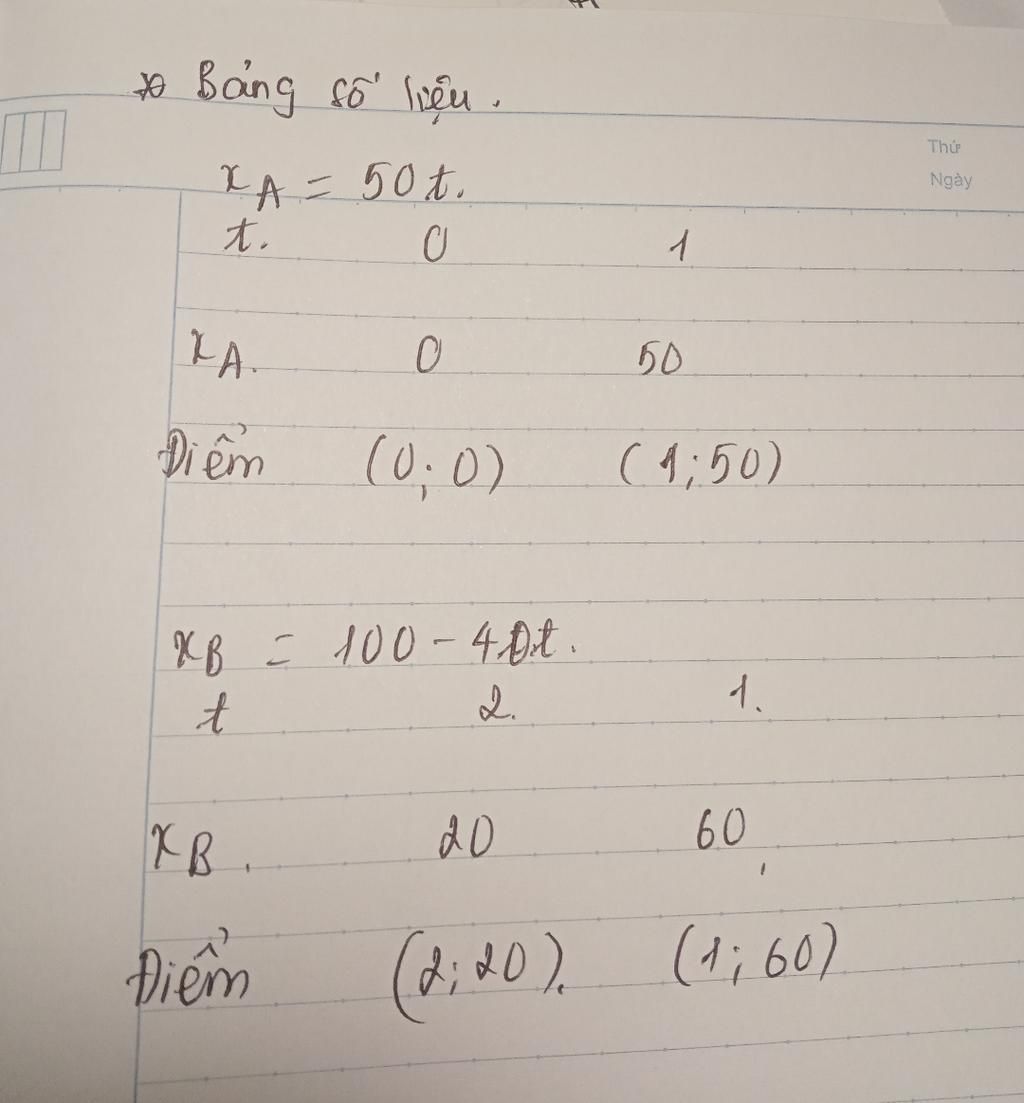 * Bảng số liệu.
Thứ
Ngày
xA = 50t.
t. 0 1
xA. 0 50
Điểm (0; 0) (1; 50)
xB = 100 - 40t.
t 2. 1.
xB. 20 60,
Điểm (2; 20). (1; 60)